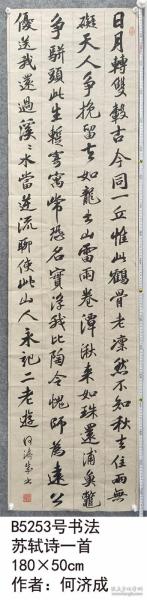 日月轉雙轂古今同一丘惟此鶴骨老凜然不知秋去住兩無
礙天人爭挽留去如龍出山雷雨卷潭湫來如珠還浦魚鱉
爭駢頭此生暫寄寓常恐名實浮我比陶令愧師為遠公
優送我還過溪溪水當逆流聊使此山人永記二老遊 何濟成書
B5253号书法
苏轼诗一首
180×50cm
作者：何济成